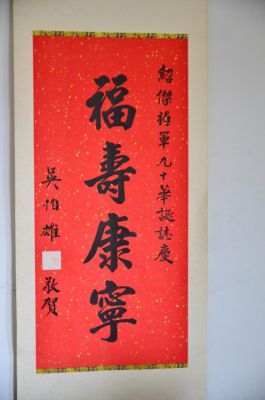 紹傑將軍九十華誕誌慶
福壽康寧
吳伯雄 敬賀